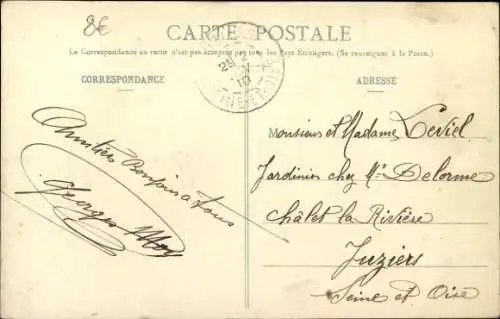 8€
CARTE POSTALE
La Correspondance au recto n'est pas acceptée par tous les Pays Étrangers. (Se renseigner à la Poste)
CORRESPONDANCE
ADRESSE
25
10
ET
Amitiés Bonjour a tous
Georges
Monsieur et Madame Leviel
Jardinier chez Mr Delorme
châlet la Rivière
Juziers
Seine et Oise